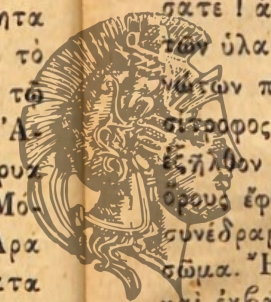 ητα
τὸ
τῶ
Ἀ-
ρυα
Μο-
Ἄρα
ατα
σατε ! ἀ
τῶν ὑλα
νώτων π
σίτροφος
ἐξῆλθον
ὄρους ἔφ
συνέδραμ
σῶμα. Ἡ